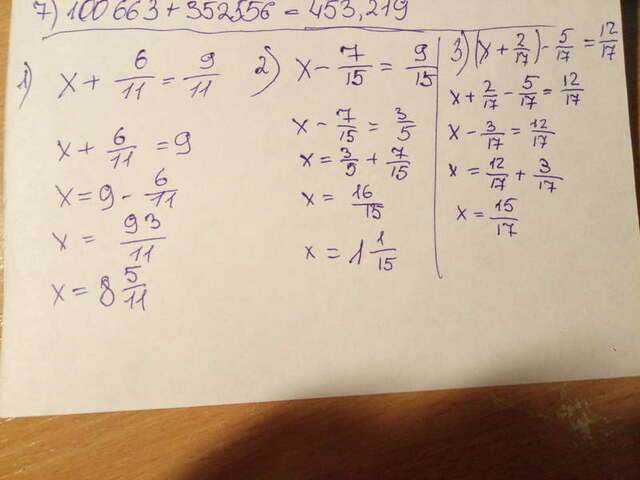 7) 100 663 + 352556 = 453,219
1) x + 6/11 = 9/11
x + 6/11 = 9
x = 9 - 6/11
x = 93/11
x = 8 5/11
2) x - 7/15 = 9/15
x - 7/15 = 3/5
x = 3/5 + 7/15
x = 16/15
x = 1 1/15
3) (x + 2/17) - 5/17 = 12/17
x + 2/17 - 5/17 = 12/17
x - 3/17 = 12/17
x = 12/17 + 3/17
x = 15/17